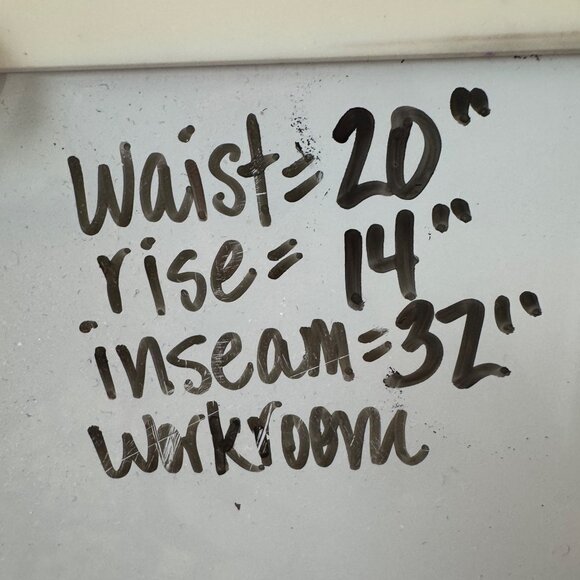 waist = 20"
rise = 14"
inseam = 32"
workroom